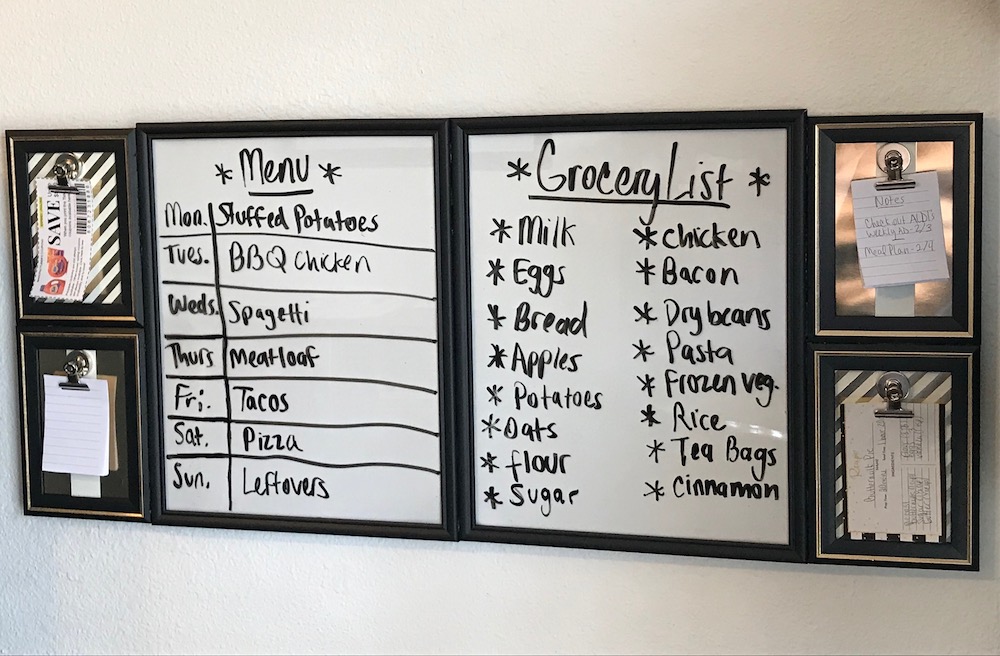 SAVE
* Menu *
Mon. Stuffed Potatoes
Tues. BBQ chicken
Weds. Spagetti
Thurs Meatloaf
Fri. Tacos
Sat. Pizza
Sun. Leftovers
* Grocery List *
* Milk
* Eggs
* Bread
* Apples
* Potatoes
* Oats
* flour
* Sugar
* chicken
* Bacon
* Dry beans
* Pasta
* Frozen veg.
* Rice
* Tea Bags
* Cinnamon
Notes
Check out ALDI's
Weekly Ad - 2/3
Meal Plan - 2/4
Recipe
Buttermilk Pie